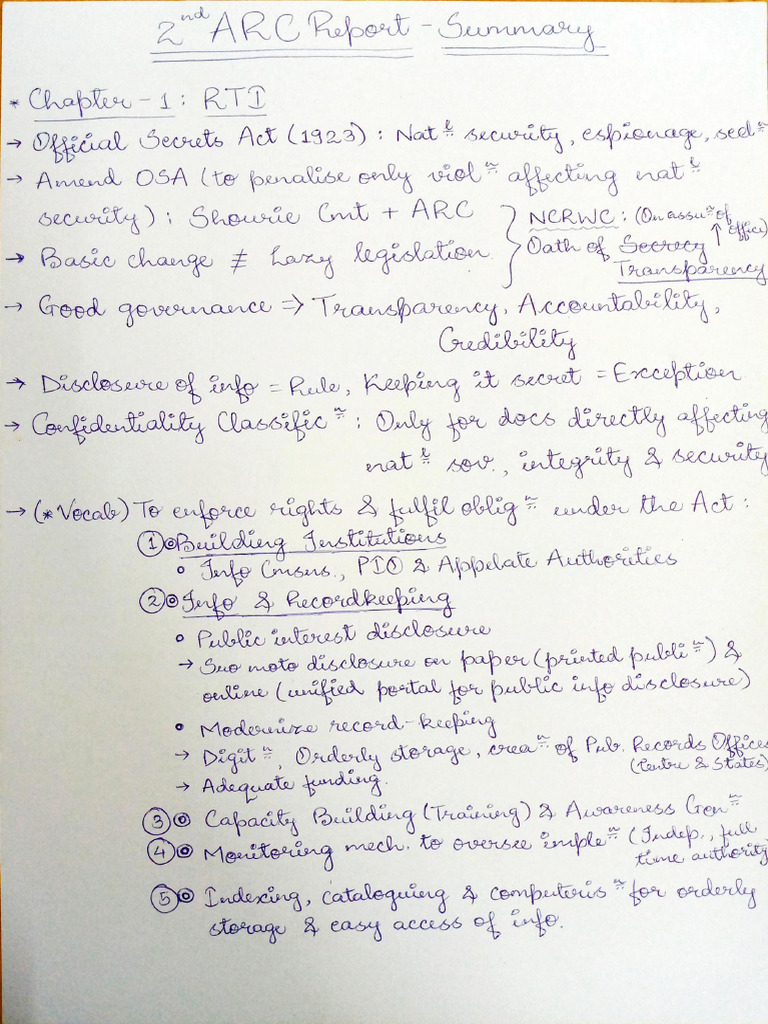 2nd ARC Report - Summary
* Chapter - 1 : RTI
→ Official Secrets Act (1923) : Natˡ security, espionage, sedⁿ
→ Amend OSA (to penalise only violⁿ affecting natˡ
security) : Shourie Cmt + ARC
} NCRWC : (On assuⁿ of office)
Oath of Secrecy ↑
Transparency
→ Basic change ≠ Lazy legislation
→ Good governance ⇒ Transparency, Accountability,
Credibility
→ Disclosure of info = Rule, Keeping it secret = Exception
→ Confidentiality Classificⁿ : Only for docs directly affecting
natˡ sov., integrity & security
→ (*Vocab) To enforce rights & fulfil obligⁿ under the Act :
① Building Institutions
° Info Cmsns., PIO & Appelate Authorities
② Info & Recordkeeping
° Public interest disclosure
→ Suo moto disclosure on paper (printed publiⁿ) &
online (unified portal for public info disclosure)
• Modernize record-keeping
→ Digitⁿ, Orderly storage, creaⁿ of Pub. Records Offices
(Centre & States)
→ Adequate funding.
③ Capacity Building (Training) & Awareness Genⁿ
④ Monitoring mech. to oversee impleⁿ (Indep., full
time authority)
⑤ Indexing, cataloguing & computerisⁿ for orderly
storage & easy access of info.